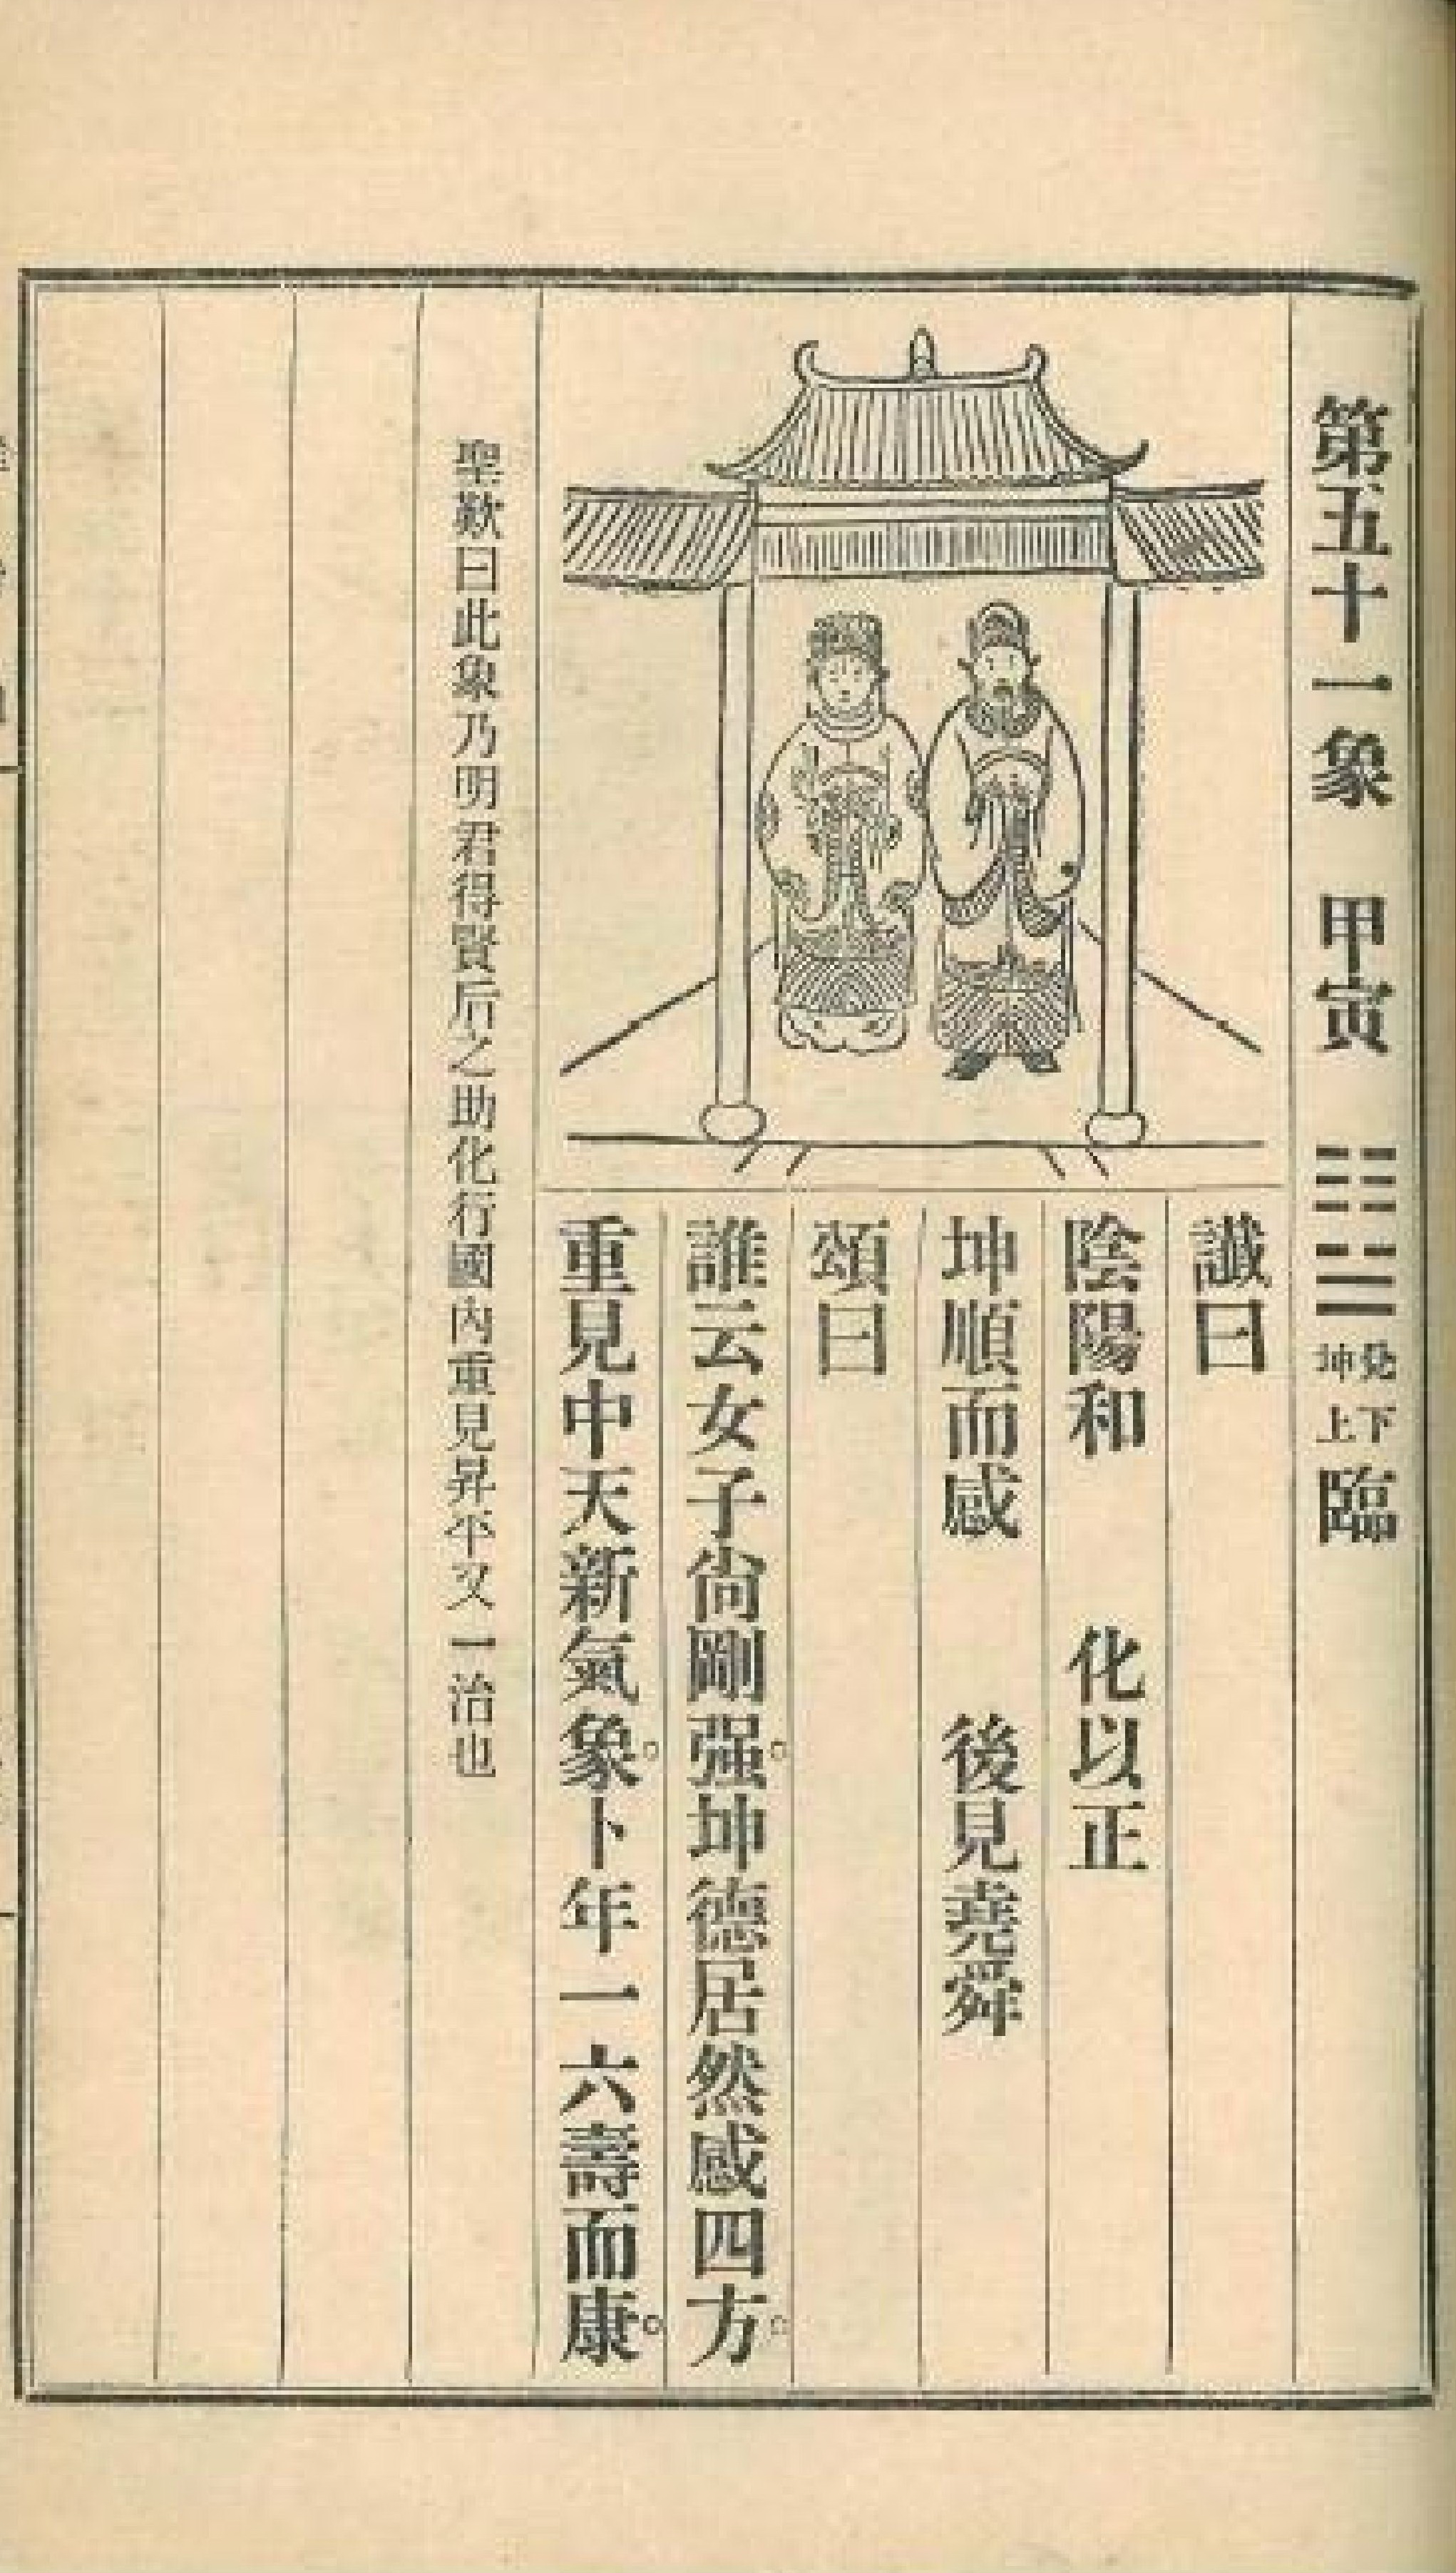 第五十一象 甲寅 兌下坤上 臨
讖曰
陰陽和 化以正
坤順而感 後見堯舜
頌曰
誰云女子尙剛强。坤德居然感四方。
重見中天新氣象。卜年一六壽而康。
聖歎曰此象乃明君得賢后之助化行國內重見昇平又一治也